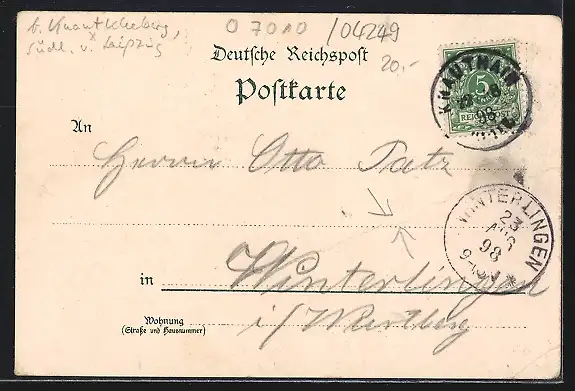 b. Knautkleeberg,
südl. v. Leipzig
O 7010 /04249
20,-
Deutsche Reichspost
Postkarte
5
KNAUTHAIN
98
An
Herrn Otto Patz
WINTERLINGEN
23
AUG
98
in Winterlingen
Wohnung
(Straße und Hausnummer)
i/ Wertbg